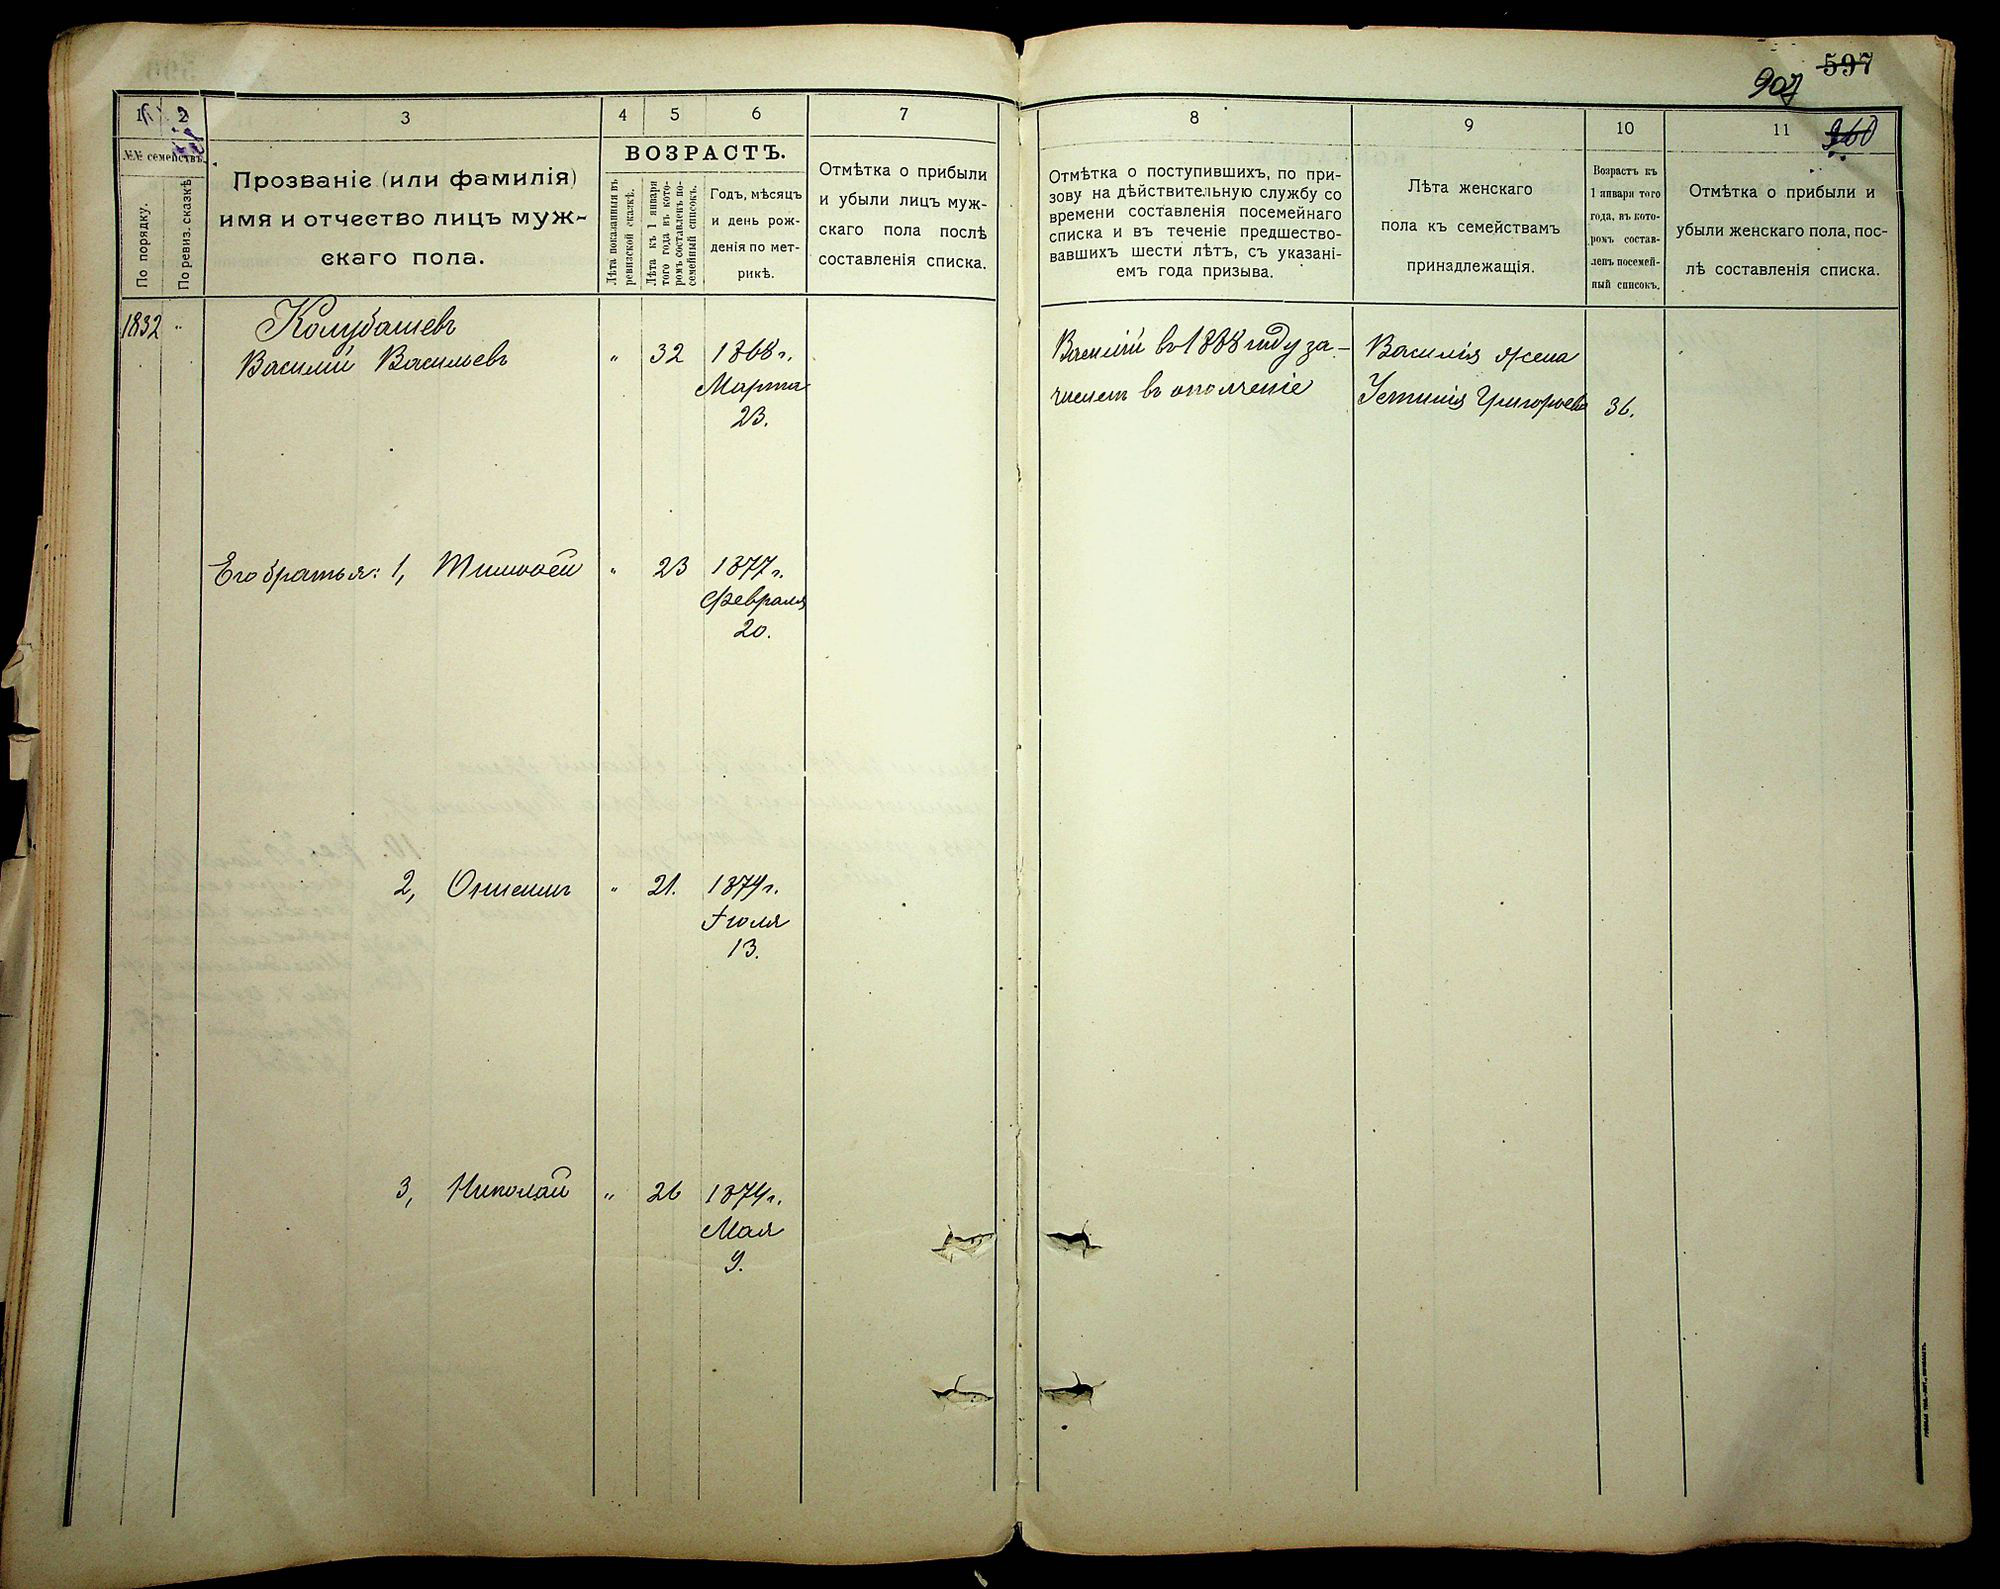 597
907
360
1
2
3
4
5
6
7
№№ семействъ
По порядку.
По ревиз. сказкѣ
Прозваніе (или фамилія)
имя и отчество лицъ муж-
скаго пола.
ВОЗРАСТЪ.
Лѣта показанныя въ
ревизской сказкѣ.
Лѣта къ 1 января
того года въ кото-
ромъ составленъ по-
семейный списокъ.
Годъ, мѣсяцъ
и день рож-
денія по мет-
рикѣ.
Отмѣтка о прибыли
и убыли лицъ муж-
скаго пола послѣ
составленія списка.
1832 "
Колубашевъ
Василій Васильевъ " 32 1868 г.
Марта
23.
Его братья: 1, Тимофей " 23 1877 г.
Февраля
20.
2, Онисимъ " 21. 1879 г.
Іюля
13.
3, Николай " 26 1874 г.
Мая
9.
8
9
10
11
Отмѣтка о поступившихъ, по при-
зову на дѣйствительную службу со
времени составленія посемейнаго
списка и въ теченіе предшество-
вавшихъ шести лѣтъ, съ указані-
емъ года призыва.
Лѣта женскаго
пола къ семействамъ
принадлежащія.
Возрастъ къ
1 января того
года, въ кото-
ромъ состав-
ленъ посемей-
ный списокъ.
Отмѣтка о прибыли и
убыли женскаго пола, пос-
лѣ составленія списка.
Василій въ 1888 году за-
численъ въ ополченіе
Василія жена
Устинія Григорьева 36.